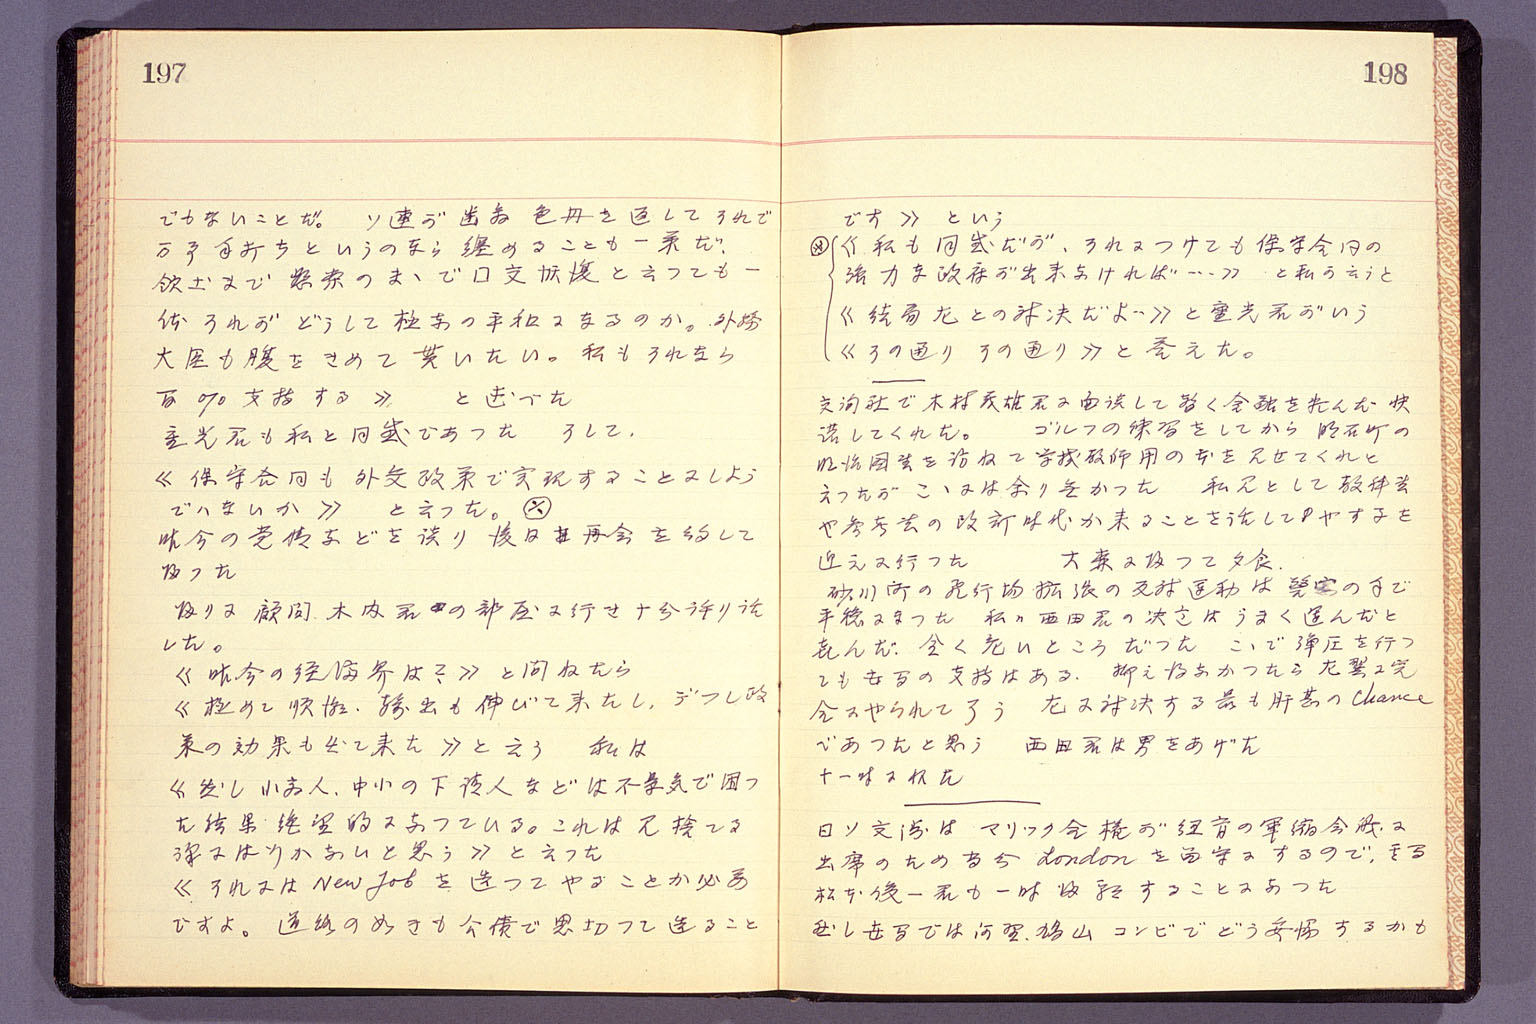 197
でもないことだ。 ソ連が歯舞 色丹を返してそれで
万事手打ちというのなら纏めることも一案だ、
まで 懸案のまゝで口交恢復と云つても一
体 それが どうして極東の平和になるのか。外務
大臣も腹をきめて貰いたい。私もそれなら
百%支持する》 と述べた
重光君も私と同感であつた そして、
《保守合同も 外交政策で実現することにしよう
ではないか》 と云つた。
昨今の党情などを語り 後日再会を約して
帰つた
帰りに 顧問 木内君の部屋に行き十分許り話
した。
《昨今の経済界は?》と問ねたら
《極めて順調、輸出も伸びて来たし、デフレ政
策の効果も出て来た》と云う 私は
《然し 小商人、中小の下請人などは不景気で困つ
た結果 絶望的になつている。これは見捨てる
訳にはゆかないと思う》と云つた
《それには New Job を 造つてやることが必要
ですよ。道路の如きも公債で思切つて造ること
198
です》 という
《私も同感だが、それにつけても保守合同の
強力な政府が出来なければ……》 と私が云うと
《結局左との対決だよ…》と重光君がいう
《その通り その通り》と答えた。
交詢社で木村君に面談して暫く金融を頼んだ 快
諾してくれた。 ゴルフの練習をしてから 明石町の
明治図書を訪ねて学校教師用の本を見せてくれと
云つたが こゝには余り無かつた 私見として教科書
や参考書の改訂時代が来ることを話して やすを
迎えに行つた 大森に帰つて夕食.
砂川町の飛行場拡張の反対運動は警官の手で
平穏にまつた 私は西田君の決定はうまく運んだと
喜んだ. 全く危いところだつた こゝで弾圧を行つ
ても世間の支持はある. 抑え得なかつたら左翼に完
全にやられて了う 左に対決する最も肝甚の Chance
であつたと思う 西田君は男をあげた
十一時に休む
日ソ交渉は マリツク全権が紐育の軍縮会議に
出席のため 当分 London を留守にするので、
松本俊一君も一時帰朝することになつた
然し世間では河野、鳩山 コンビでどう妥協するかも